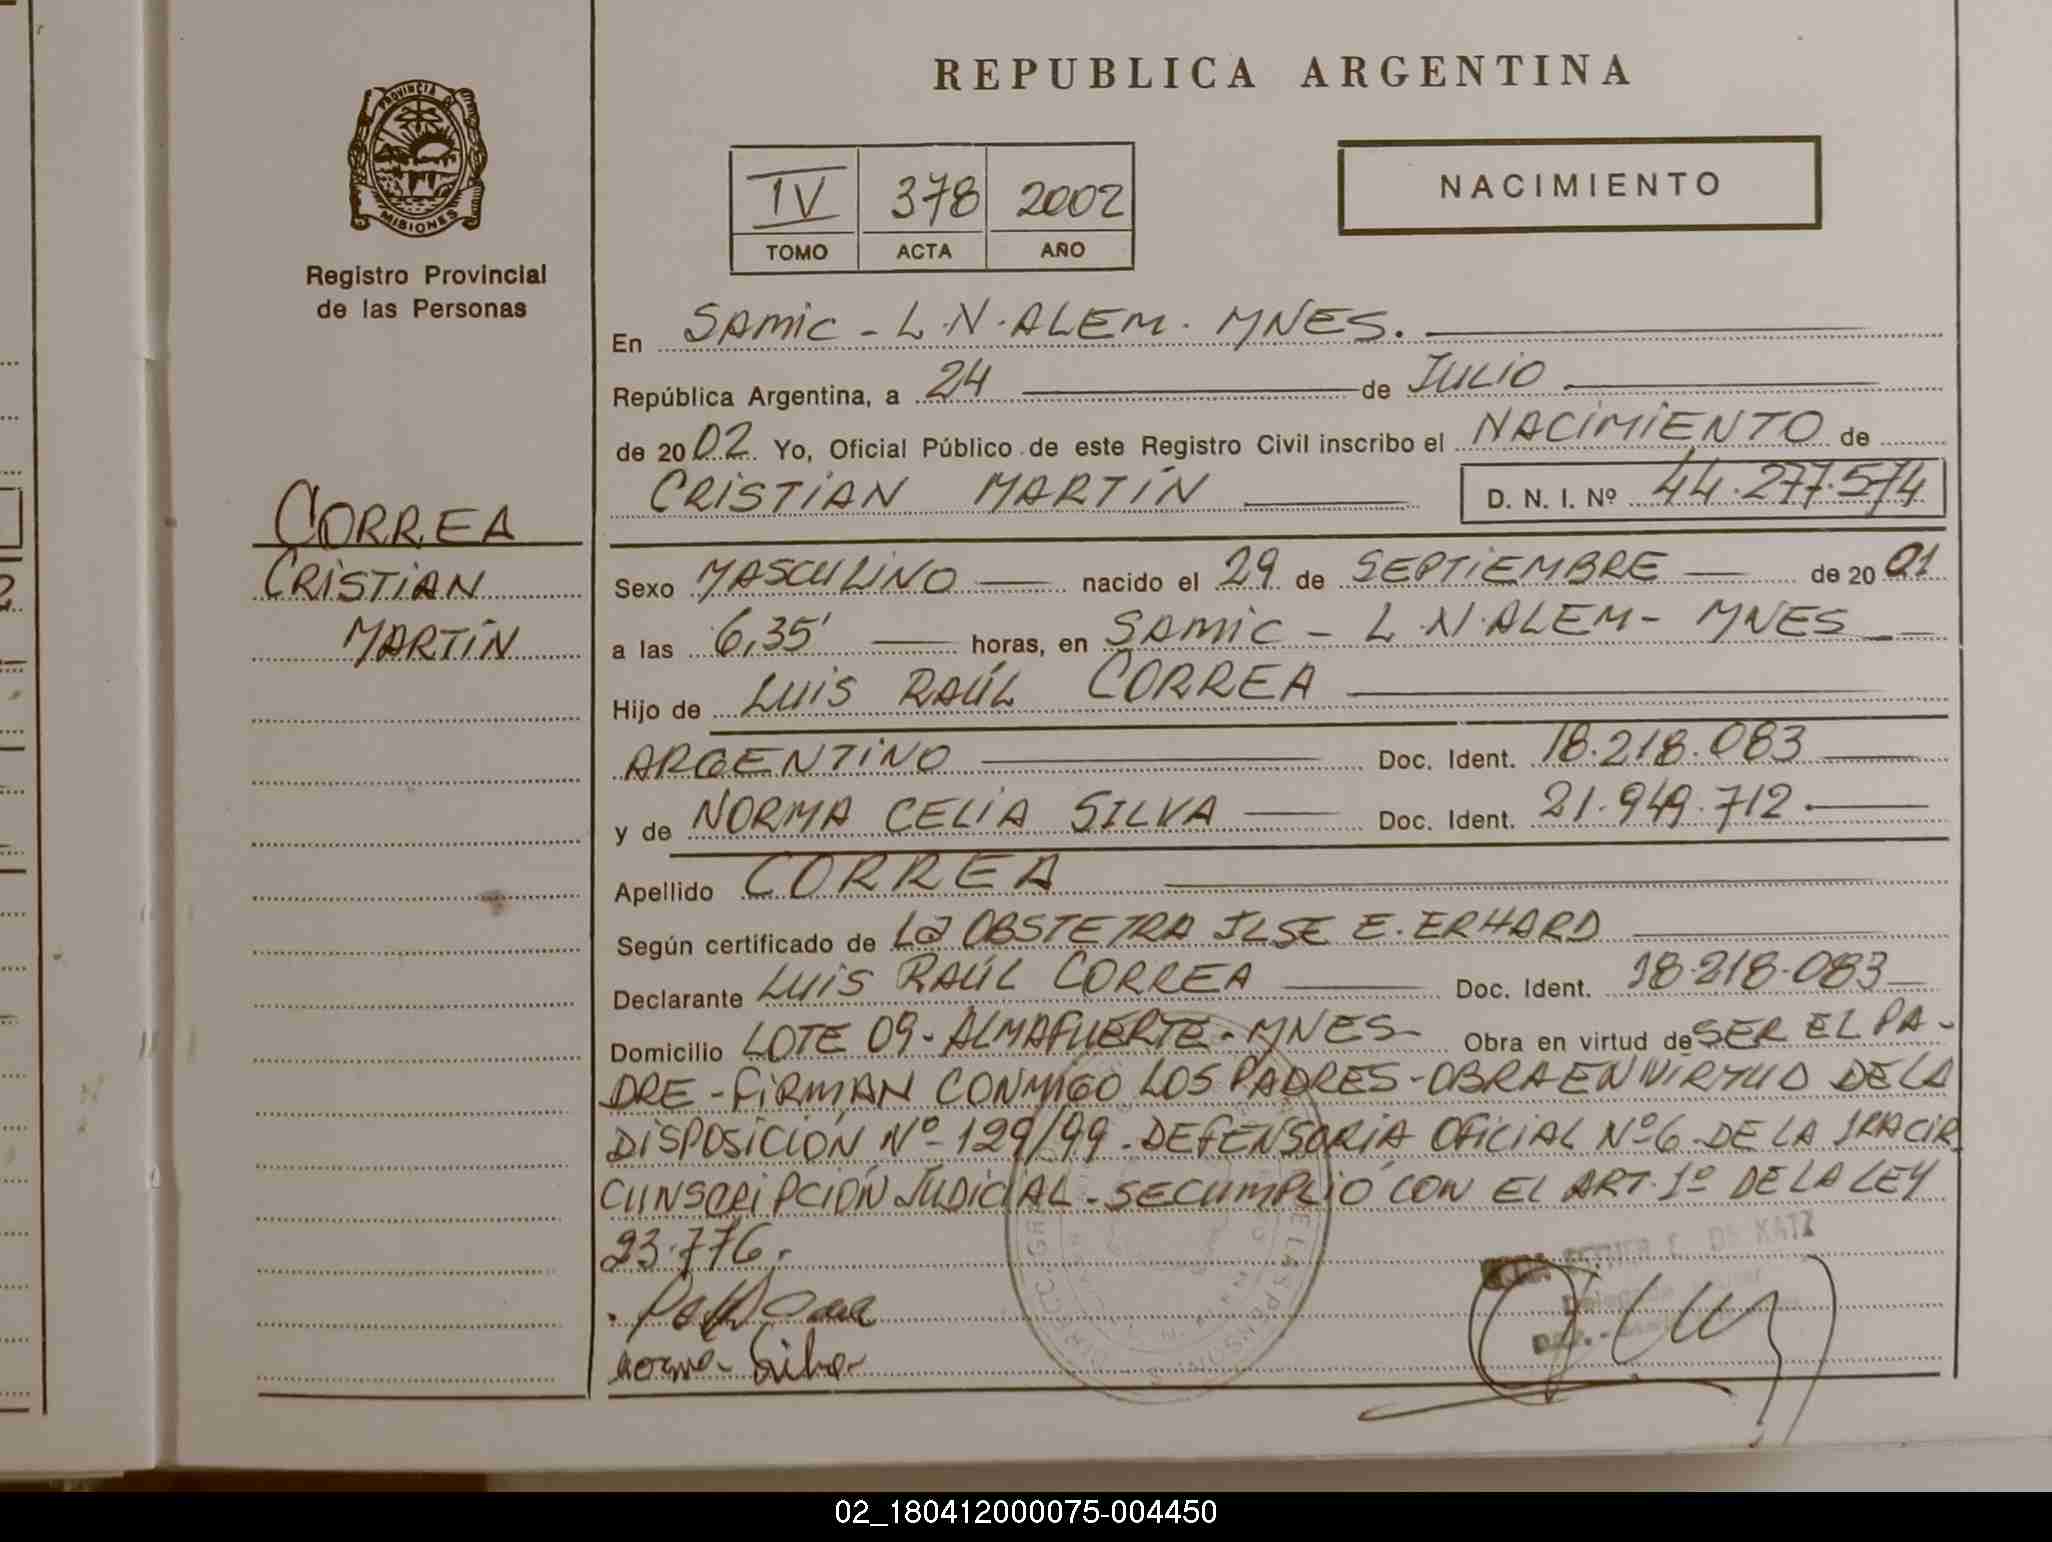 REPUBLICA ARGENTINA
PROVINCIA DE
MISIONES
Registro Provincial
de las Personas
IV 378 2002
TOMO ACTA AÑO
NACIMIENTO
CORREA
CRISTIAN
MARTÍN
En SAMIC - L.N.ALEM. MNES.
República Argentina, a 24 de JULIO
de 2002 Yo, Oficial Público de este Registro Civil inscribo el NACIMIENTO de
CRISTIAN MARTÍN D. N. I. Nº 44.277.574
Sexo MASCULINO nacido el 29 de SEPTIEMBRE de 2001
a las 6,35' horas, en SAMIC - L.N.ALEM - MNES
Hijo de LUIS RAÚL CORREA
ARGENTINO Doc. Ident. 18.218.083
y de NORMA CELIA SILVA Doc. Ident. 21.949.712.
Apellido CORREA
Según certificado de La OBSTETRA ILSE E. ERHARD
Declarante LUIS RAÚL CORREA Doc. Ident. 18.218.083
Domicilio LOTE 09 - ALMAFUERTE - MNES Obra en virtud de SER EL PA-
DRE - FIRMAN CONMIGO LOS PADRES - OBRA EN VIRTUD DE LA
DISPOSICIÓN Nº 129/99 - DEFENSORÍA OFICIAL Nº 6 - DE LA 1RA CIR
CUNSCRIPCIÓN JUDICIAL - SE CUMPLIÓ CON EL ART. 1º DE LA LEY
23.776.
DE KATZ
Norma Silva
02_180412000075-004450